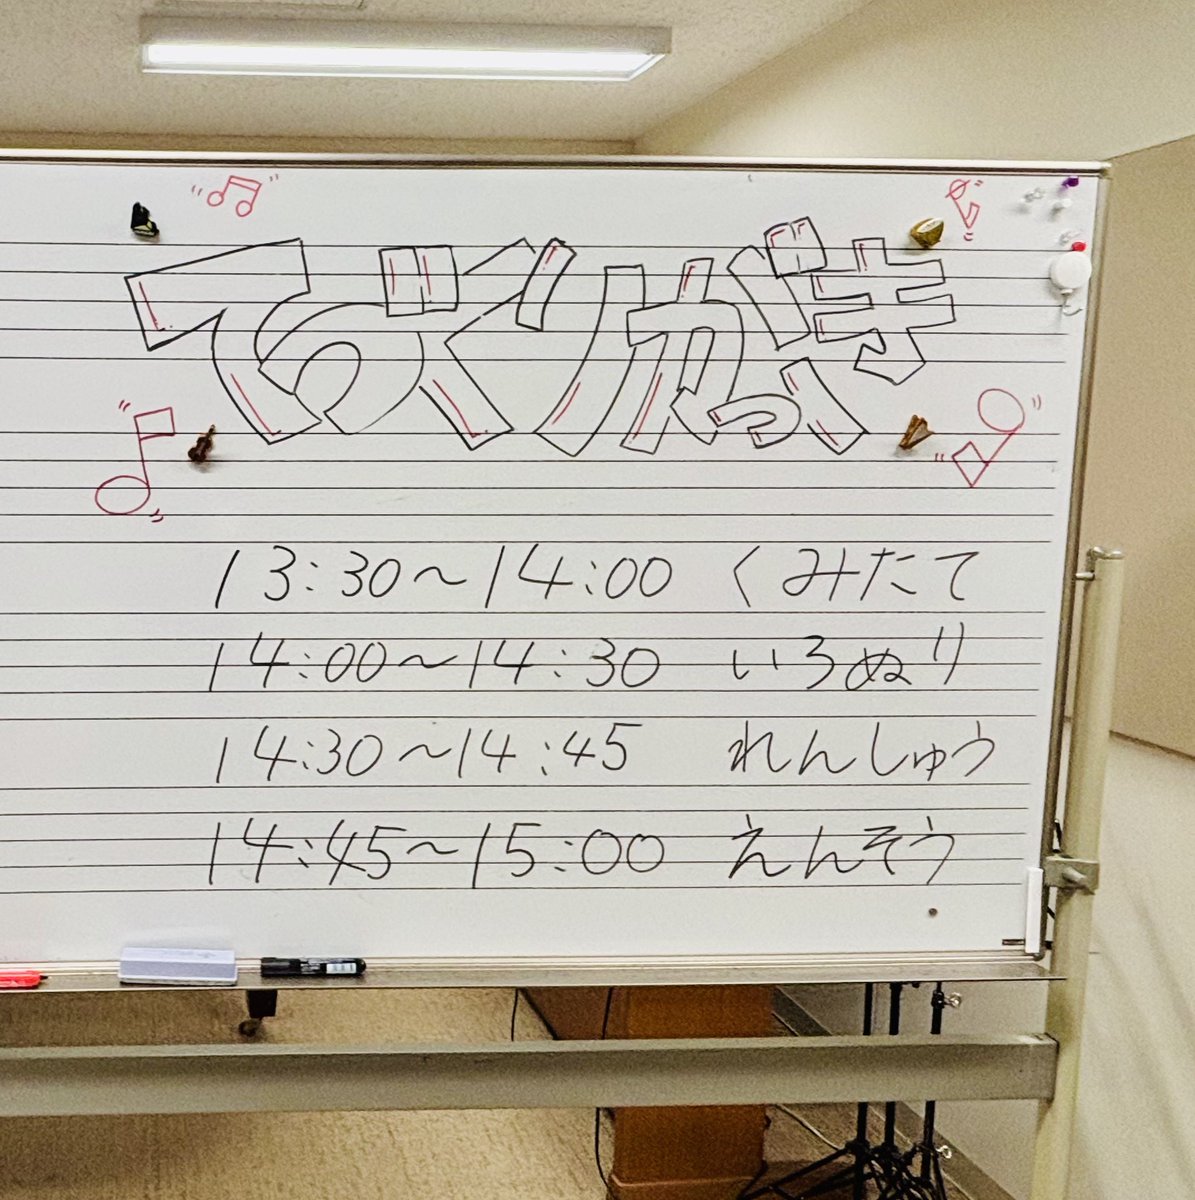 てづくりがっき
13:30〜14:00 くみたて
14:00〜14:30 いろぬり
14:30〜14:45 れんしゅう
14:45〜15:00 えんそう